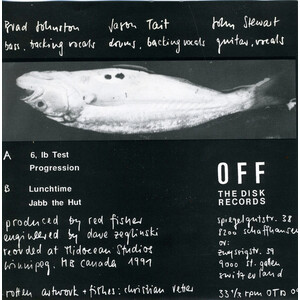 Brad Johnston
bass, backing vocals
Jason Tait
drums, backing vocals
John Stewart
guitar, vocals
A 6, lb Test
Progression
B Lunchtime
Jabb the Hut
produced by red fisher
engineered by dave zeglinski
recorded at Midocean Studios
Winnipeg. MB Canada 1991
rotten artwork + fishes: christian
OFF
THE DISK
RECORDS
spiegelgutstr. 38
8200 schaffhausen
or:
39
9000 st. gallen
switzerland
33 1/3 rpm OTD